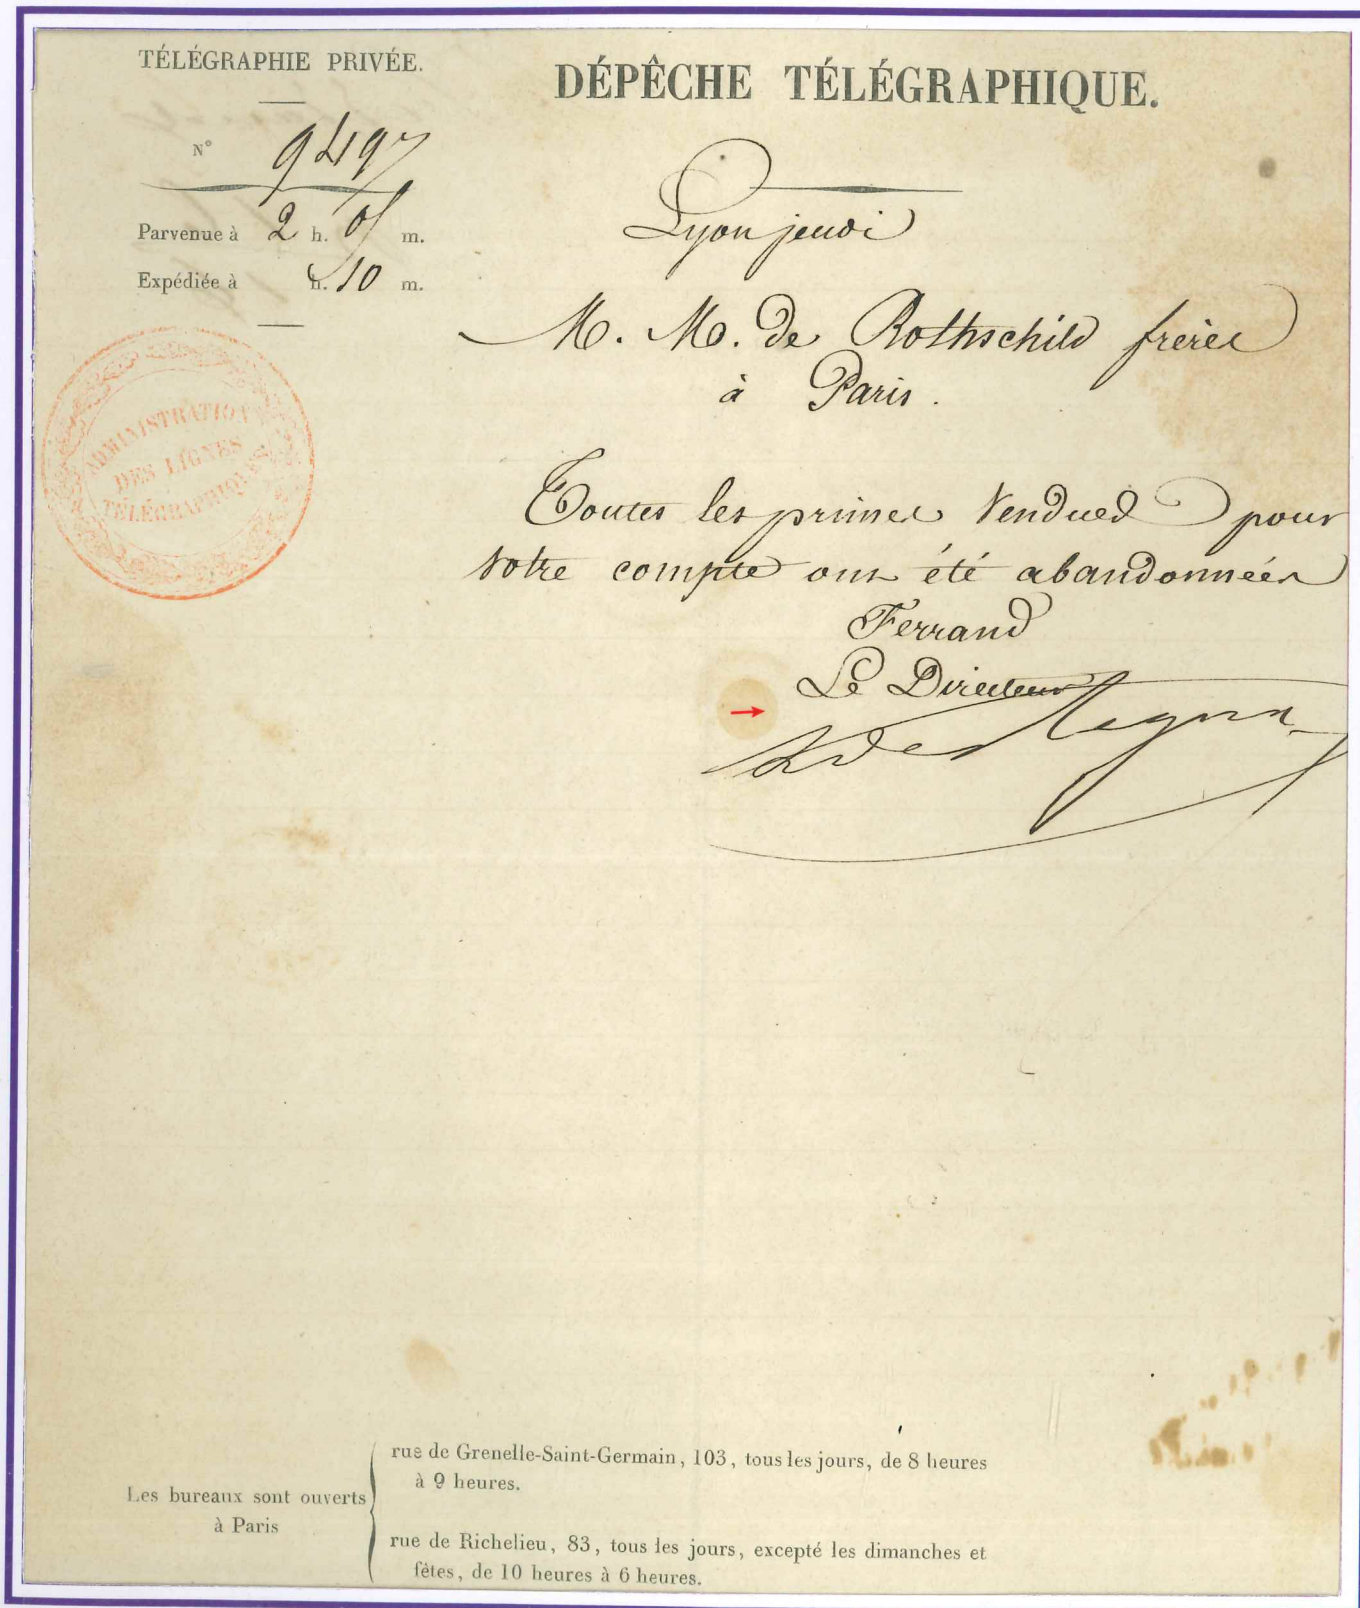 TÉLÉGRAPHIE PRIVÉE.
N° 9497
Parvenue à 2 h. 05 m.
Expédiée à h. 10 m.
ADMINISTRATION
DES LIGNES
TÉLÉGRAPHIQUES
DÉPÊCHE TÉLÉGRAPHIQUE.
Lyon jeudi
M. M. de Rothschild frères
à Paris.
Toutes les primes vendues pour
votre compte ont été abandonnées
Ferrand
Le Directeur
Les bureaux sont ouverts
à Paris
rue de Grenelle-Saint-Germain, 103, tous les jours, de 8 heures
à 9 heures.
rue de Richelieu, 83, tous les jours, excepté les dimanches et
fêtes, de 10 heures à 6 heures.